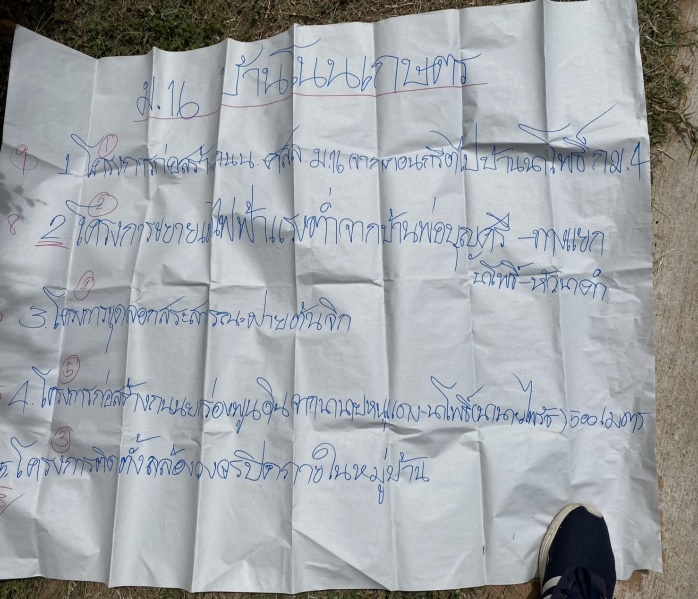 ม.16 บ้านโนนเกษตร
9 ① 1. โครงการก่อสร้างถนน คสล. ม.16 จาก ไปบ้านนาโพธิ์ ม.4
8 ② 2 โครงการขยายไฟฟ้าแรงต่ำจากบ้านพ่อบุญศรี - ทางแยก
นาโพธิ์ - หัวนาคำ
3. โครงการขุดลอกสระสาธารณะฝายต้นจิก
⑤ 4. โครงการก่อสร้างถนนยกร่องพูนดินจากนานายหนูแดง - นาโพธิ์ (นานาย 1500 เมตร
③ 5. โครงการติดตั้งกล้องวงจรปิดภายในหมู่บ้าน